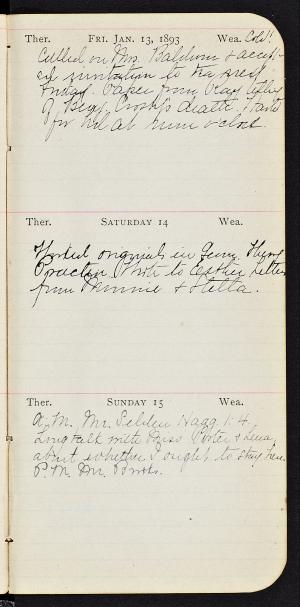 Ther. FRI. JAN. 13, 1893 Wea. Cold!!
Called on Mrs. Baldwin & accept-
ed invitation to tea next
Friday. Paper from Ray telling
of Benj. Crosby's death. Started
for bed at nine o'clock.
Ther. SATURDAY 14 Wea.
Worked originals in Geom.
Practice. Wrote to Esther. Letters
from Minnie & Stella.
Ther. SUNDAY 15 Wea.
A.M. Mr. Selden Hagg. 1:4.
Long talk with Miss Porter & Lena
about whether I ought to stay here.
P.M. Mr.